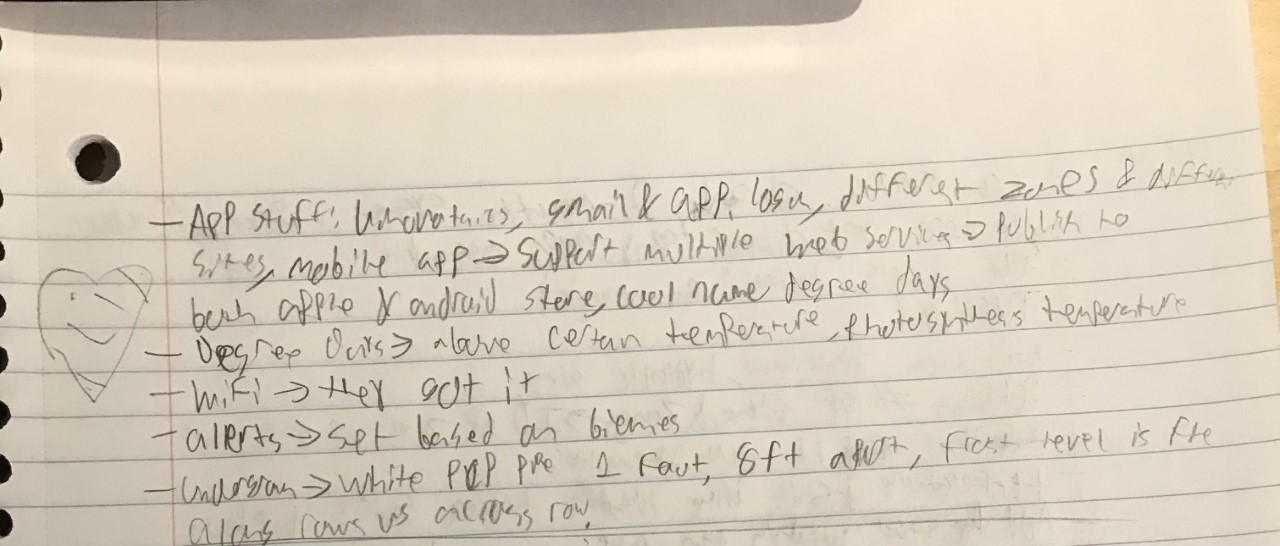 - App stuff: email & app, login, different zones &
sites, mobile app → support multiple web services → publish to
both apple & android store, cool name degree days
- Degree Days → above certain temperature, photosynthesis temperature
- WiFi → they got it
- alerts → set based on
- → white 1 foot, 8ft apart, frost level is
along rows vs across row.